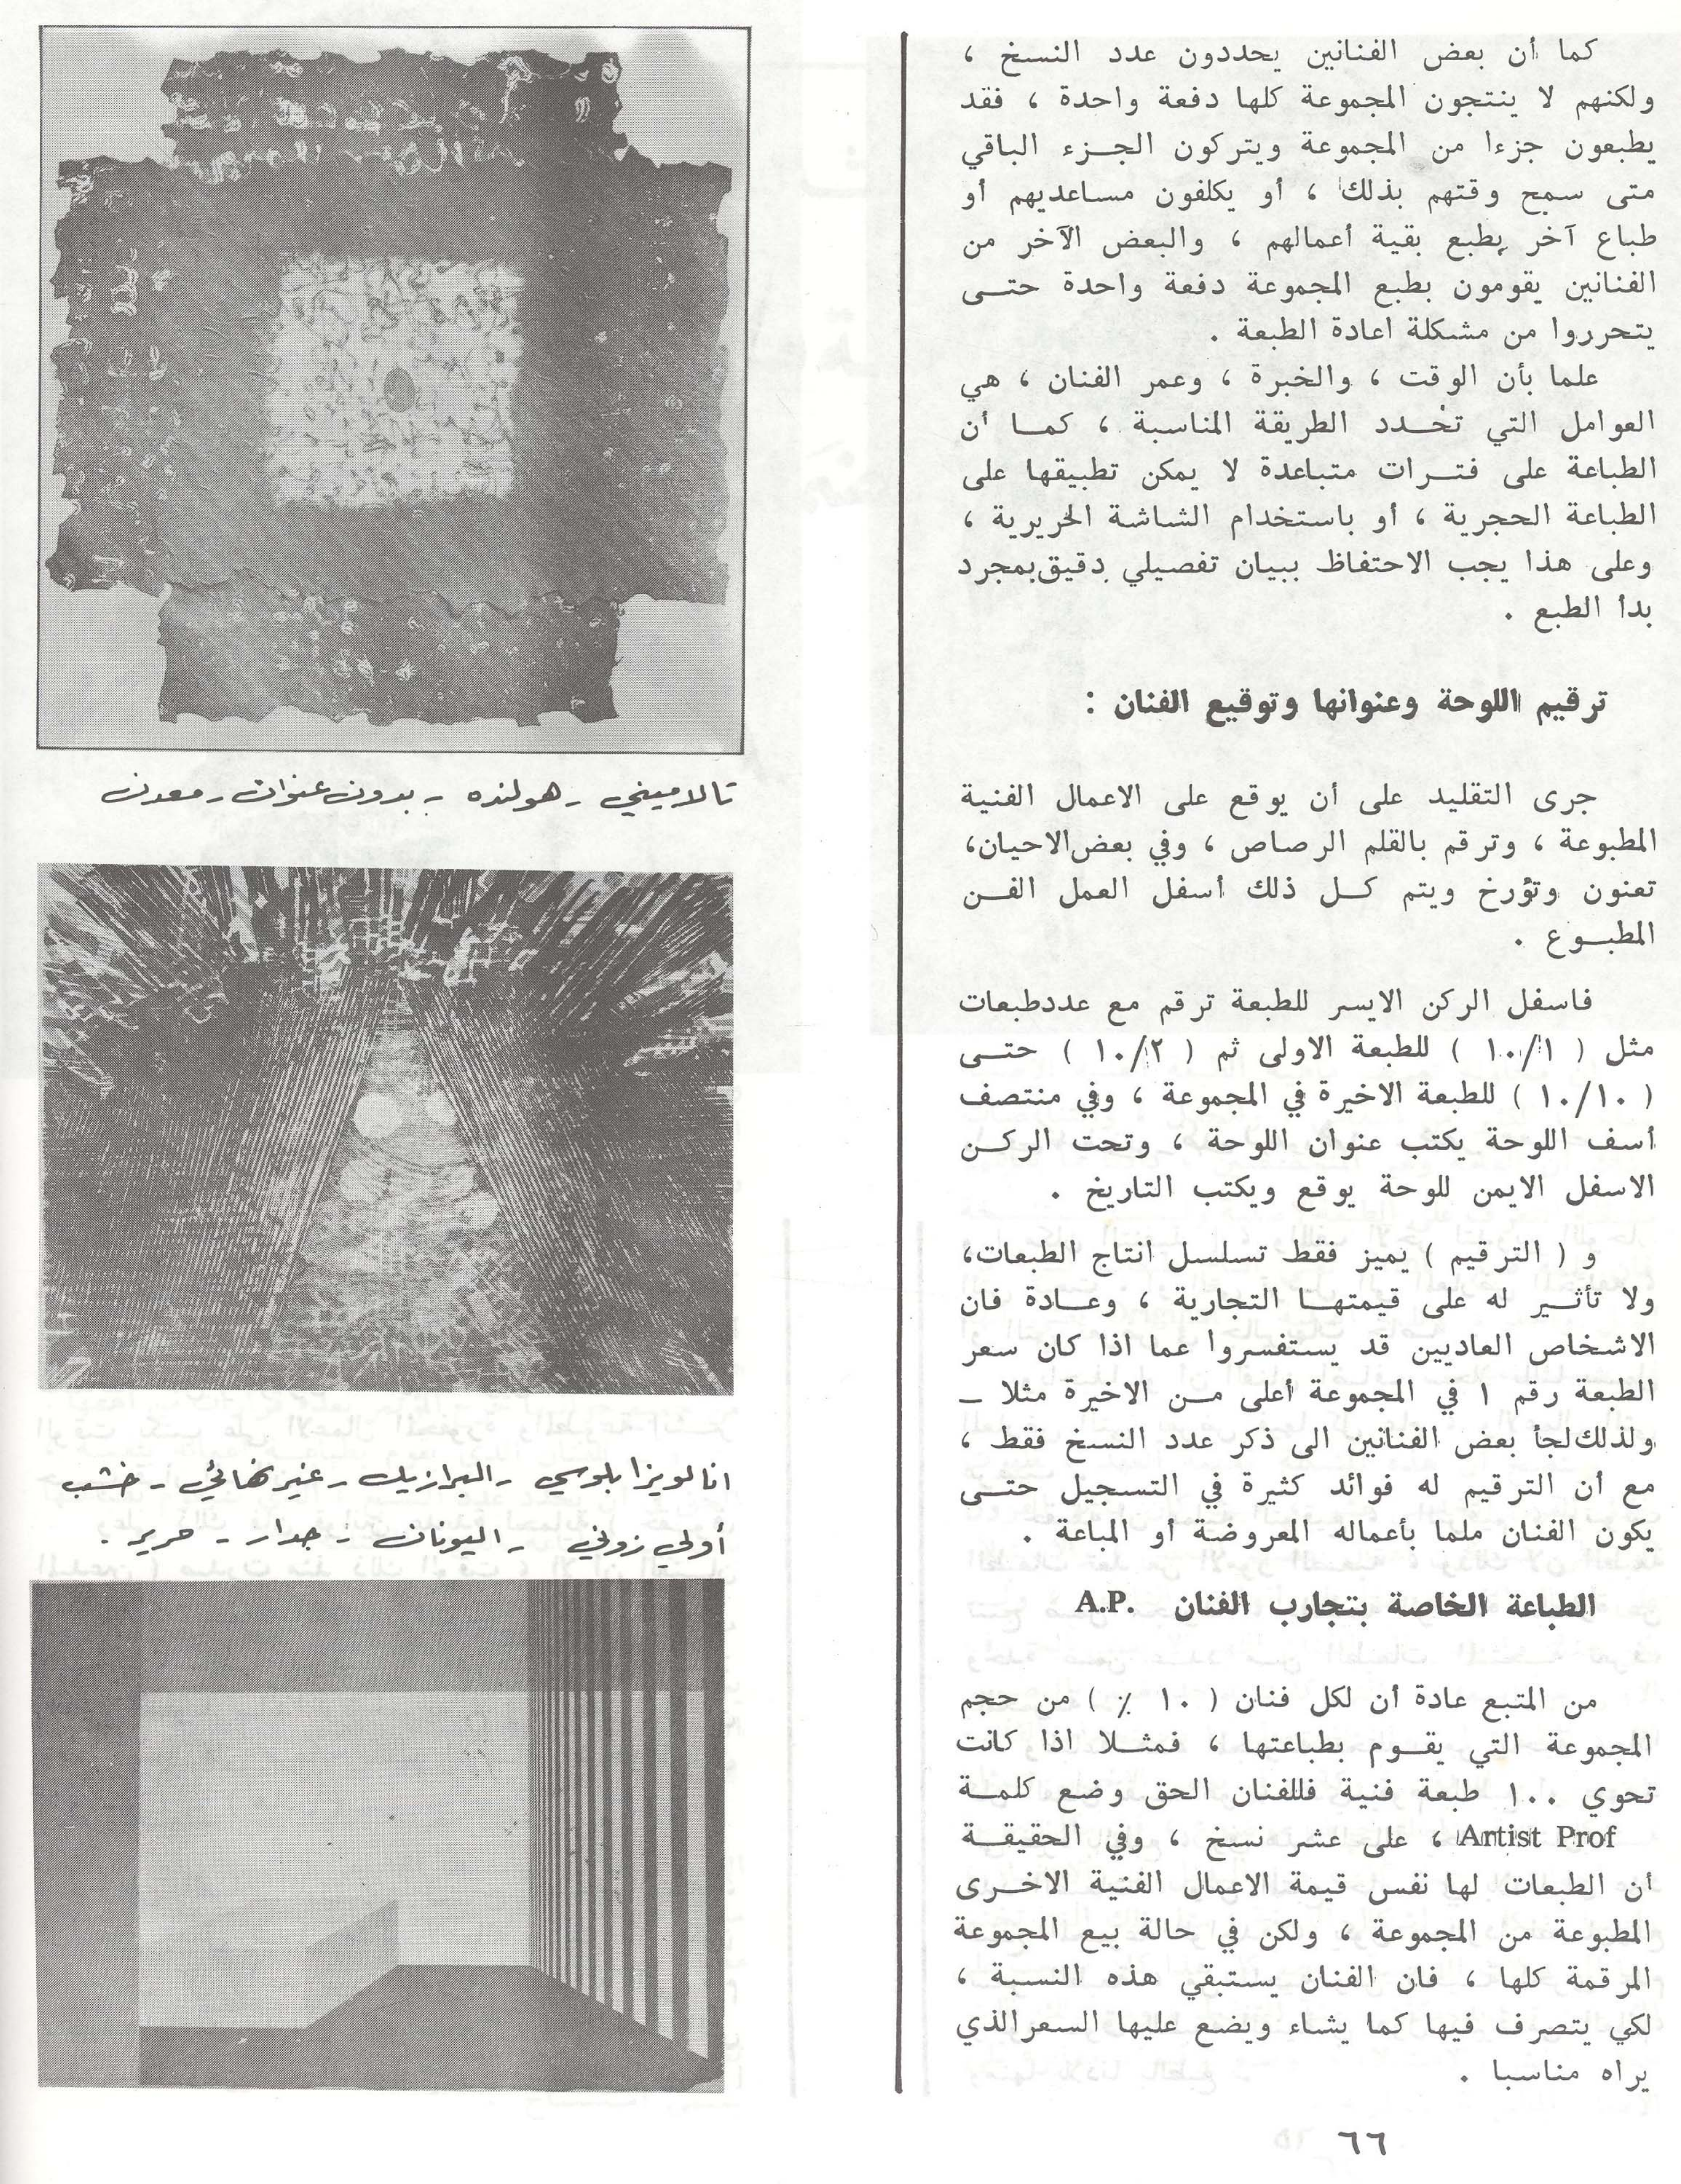 كما أن بعض الفنانين يحددون عدد النسخ ،
ولكنهم لا ينتجون المجموعة كلها دفعة واحدة ، فقد
يطبعون جزءا من المجموعة ويتركون الجـزء الباقي
متى سمح وقتهم بذلك ، أو يكلفون مساعديهم أو
طباع آخر يطبع بقية أعمالهم ، والبعض الآخر من
الفنانين يقومون بطبع المجموعة دفعة واحدة حتـى
يتحرروا من مشكلة اعادة الطبعة .
علما بأن الوقت ، والخبرة ، وعمر الفنان ، هي
العوامل التي تحـدد الطريقة المناسبة ، كمـا أن
الطباعة على فتـرات متباعدة لا يمكن تطبيقها على
الطباعة الحجرية ، أو باستخدام الشاشة الحريرية ،
وعلى هذا يجب الاحتفاظ ببيان تفصيلي دقيق بمجرد
بدأ الطبع .
ترقيم اللوحة وعنوانها وتوقيع الفنان :
جرى التقليد على أن يوقع على الاعمال الفنية
المطبوعة ، وترقم بالقلم الرصاص ، وفي بعض الاحيان،
تعنون وتؤرخ ويتم كـل ذلك أسفل العمل الفـن
المطبـوع .
فاسفل الركن الايسر للطبعة ترقم مع عدد طبعات
مثل ( ١٠/١ ) للطبعة الاولى ثم ( ١٠/٢ ) حتـى
( ١٠/١٠ ) للطبعة الاخيرة في المجموعة ، وفي منتصف
أسف اللوحة يكتب عنوان اللوحة ، وتحت الركـن
الاسفل الايمن للوحة يوقع ويكتب التاريخ .
و ( الترقيم ) يميز فقط تسلسل انتاج الطبعات،
ولا تأثـير له على قيمتهـا التجارية ، وعـادة فان
الاشخاص العاديين قد يستفسروا عما اذا كان سعر
الطبعة رقم ١ في المجموعة أعلى مـن الاخيرة مثلا ـ
ولذلك لجأ بعض الفنانين الى ذكر عدد النسخ فقط ،
مع أن الترقيم له فوائد كثيرة في التسجيل حتـى
يكون الفنان ملما بأعماله المعروضة أو المباعة .
الطباعة الخاصة بتجارب الفنان A.P.
من المتبع عادة أن لكل فنان ( ١٠ ٪ ) من حجم
المجموعة التي يقـوم بطباعتها ، فمثـلا اذا كانت
تحوي ١٠٠ طبعة فنية فللفنان الحق وضع كلمـة
Artist Prof ، على عشر نسخ ، وفي الحقيقـة
أن الطبعات لها نفس قيمة الاعمال الفنية الاخـرى
المطبوعة من المجموعة ، ولكن في حالة بيع المجموعة
المرقمة كلها ، فان الفنان يستبقي هذه النسبة ،
لكي يتصرف فيها كما يشاء ويضع عليها السعر الذي
يراه مناسبا .
٦٦
تالاميني - هولنده - بدون عنوان - معدن
انا لويزا بلوسي - البرازيل - غير نهائي - خشب
أولي زوني - اليونان - جدار - حرير .